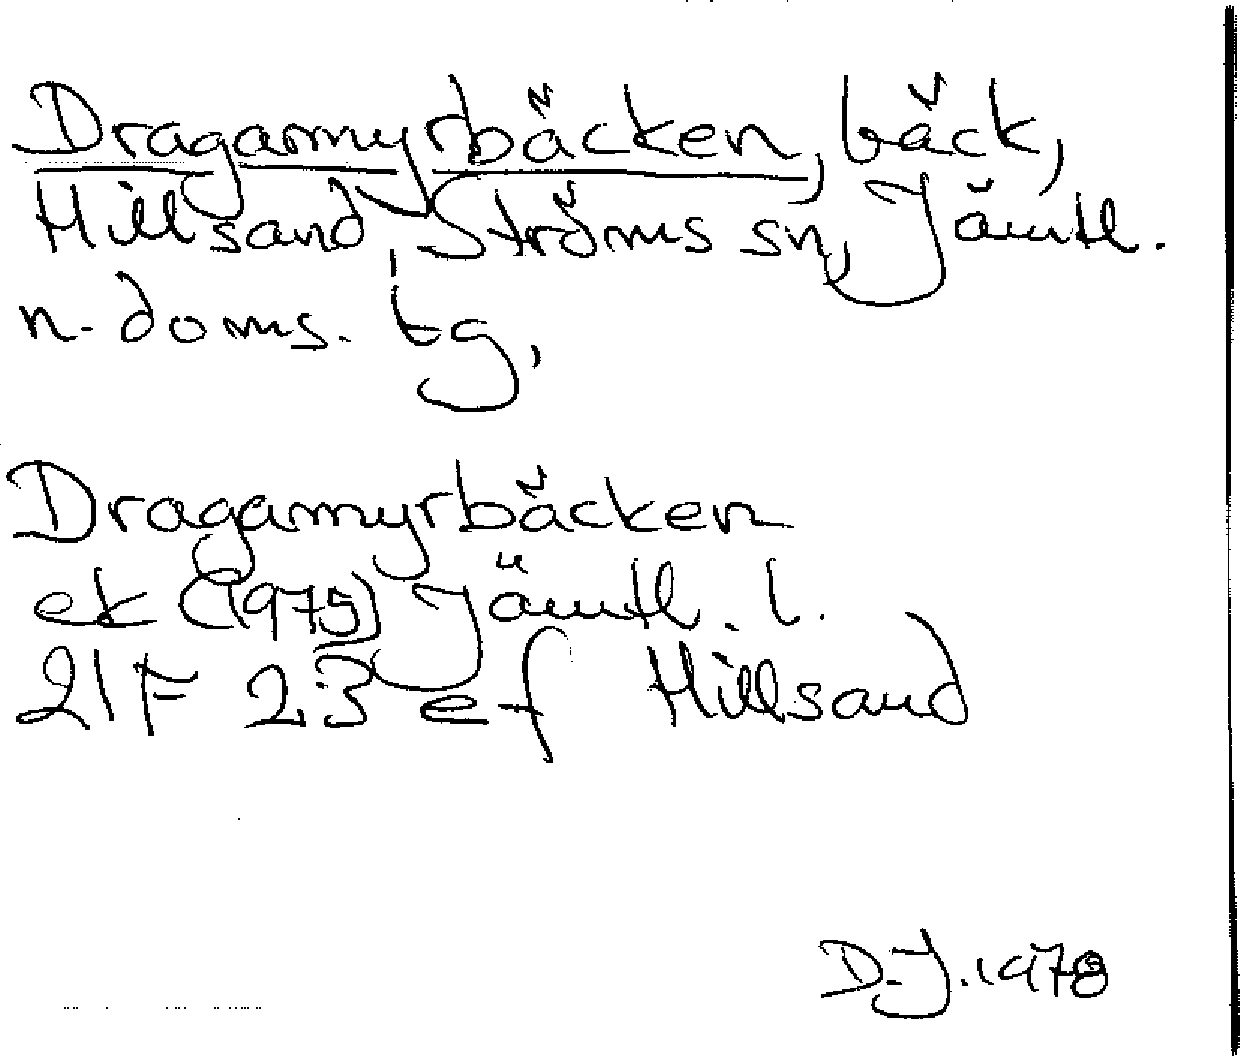 Dragamyrbäcken, bäck,
Hillsand, Ströms sn, Jämtl.
n. doms. tg,
Dragamyrbäcken
ek (1975) Jämtl. l.
21F 23 ef Hillsand
D.J. 1978